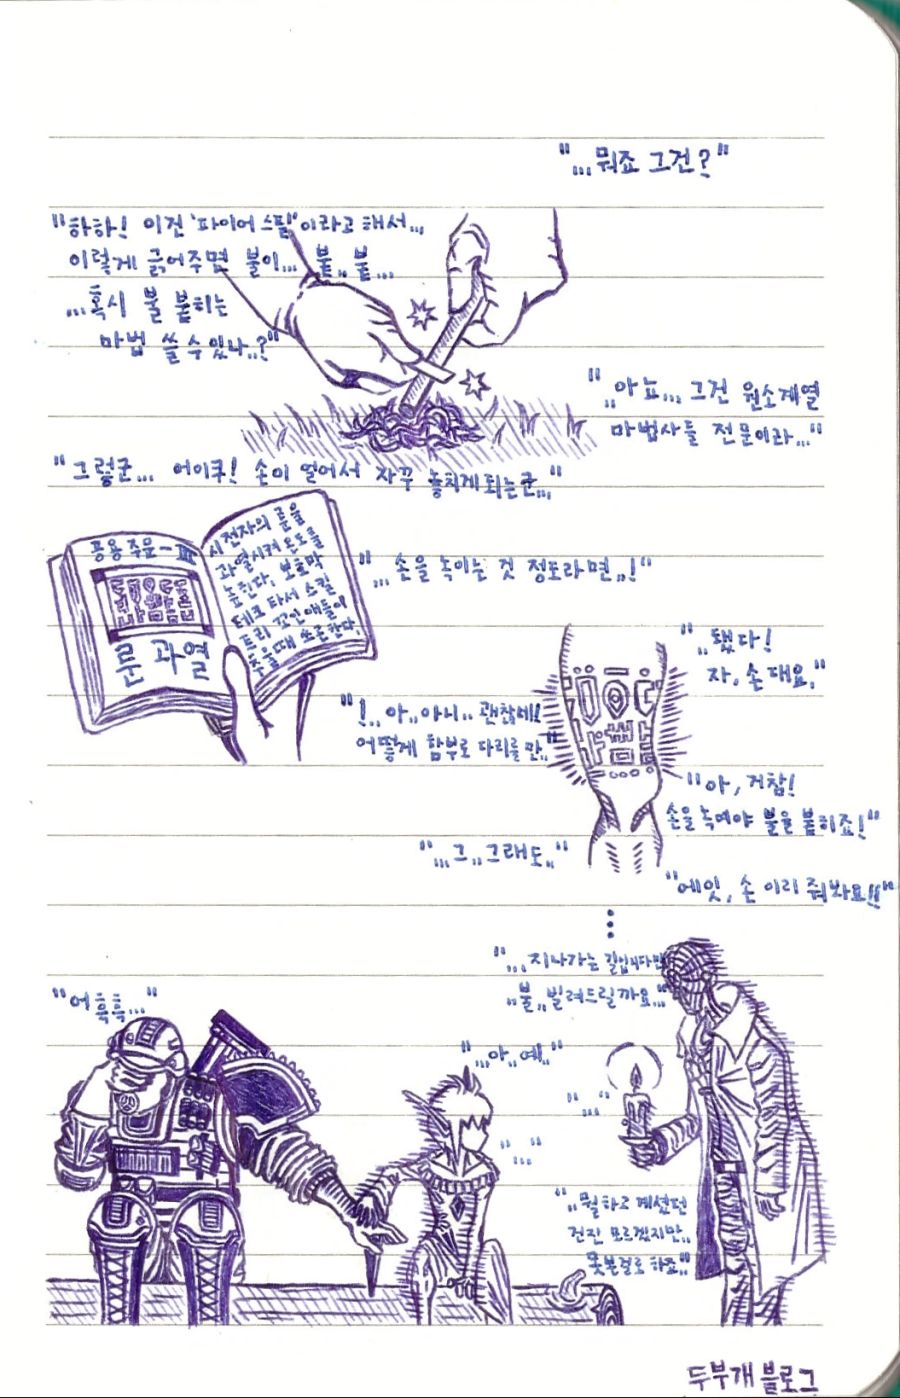 "...뭐죠 그건?"
"하하! 이건 '파이어스틸'이라고 해서...
이렇게 긁어주면 불이... 붙.. 붙...
...혹시 불 붙히는
마법 쓸 수 있나..?"
"..아뇨... 그건 원소계열
마법사들 전문이라..."
"그렇군... 어이쿠! 손이 얼어서 자꾸 놓치게되는군..."
공용주문-III
룬 과열
시전자의 룬을
과열시켜 온도를
높힌다. 보호막
테크 타서 스킬
트리 꼬인 애들이
추울때 쓰곤한다.
"...손을 녹이는 것 정도라면..!"
"..됐다!
자, 손 대요."
"!..아..아니.. 괜찮네!!
어떻게 함부로 다리를 만.."
"아, 거참!
손을녹여야 불을 붙히죠!"
"...그..그래도.."
"에잇, 손 이리 줘봐요!!"
"...지나가는 길입니다만
..불..빌려드릴까요..."
"어흑흑..."
"...아..예.."
"..."
"..."
"..뭘하고 계셨던
건진 모르겠지만..
못본걸로 하죠.."
두부개 블로그